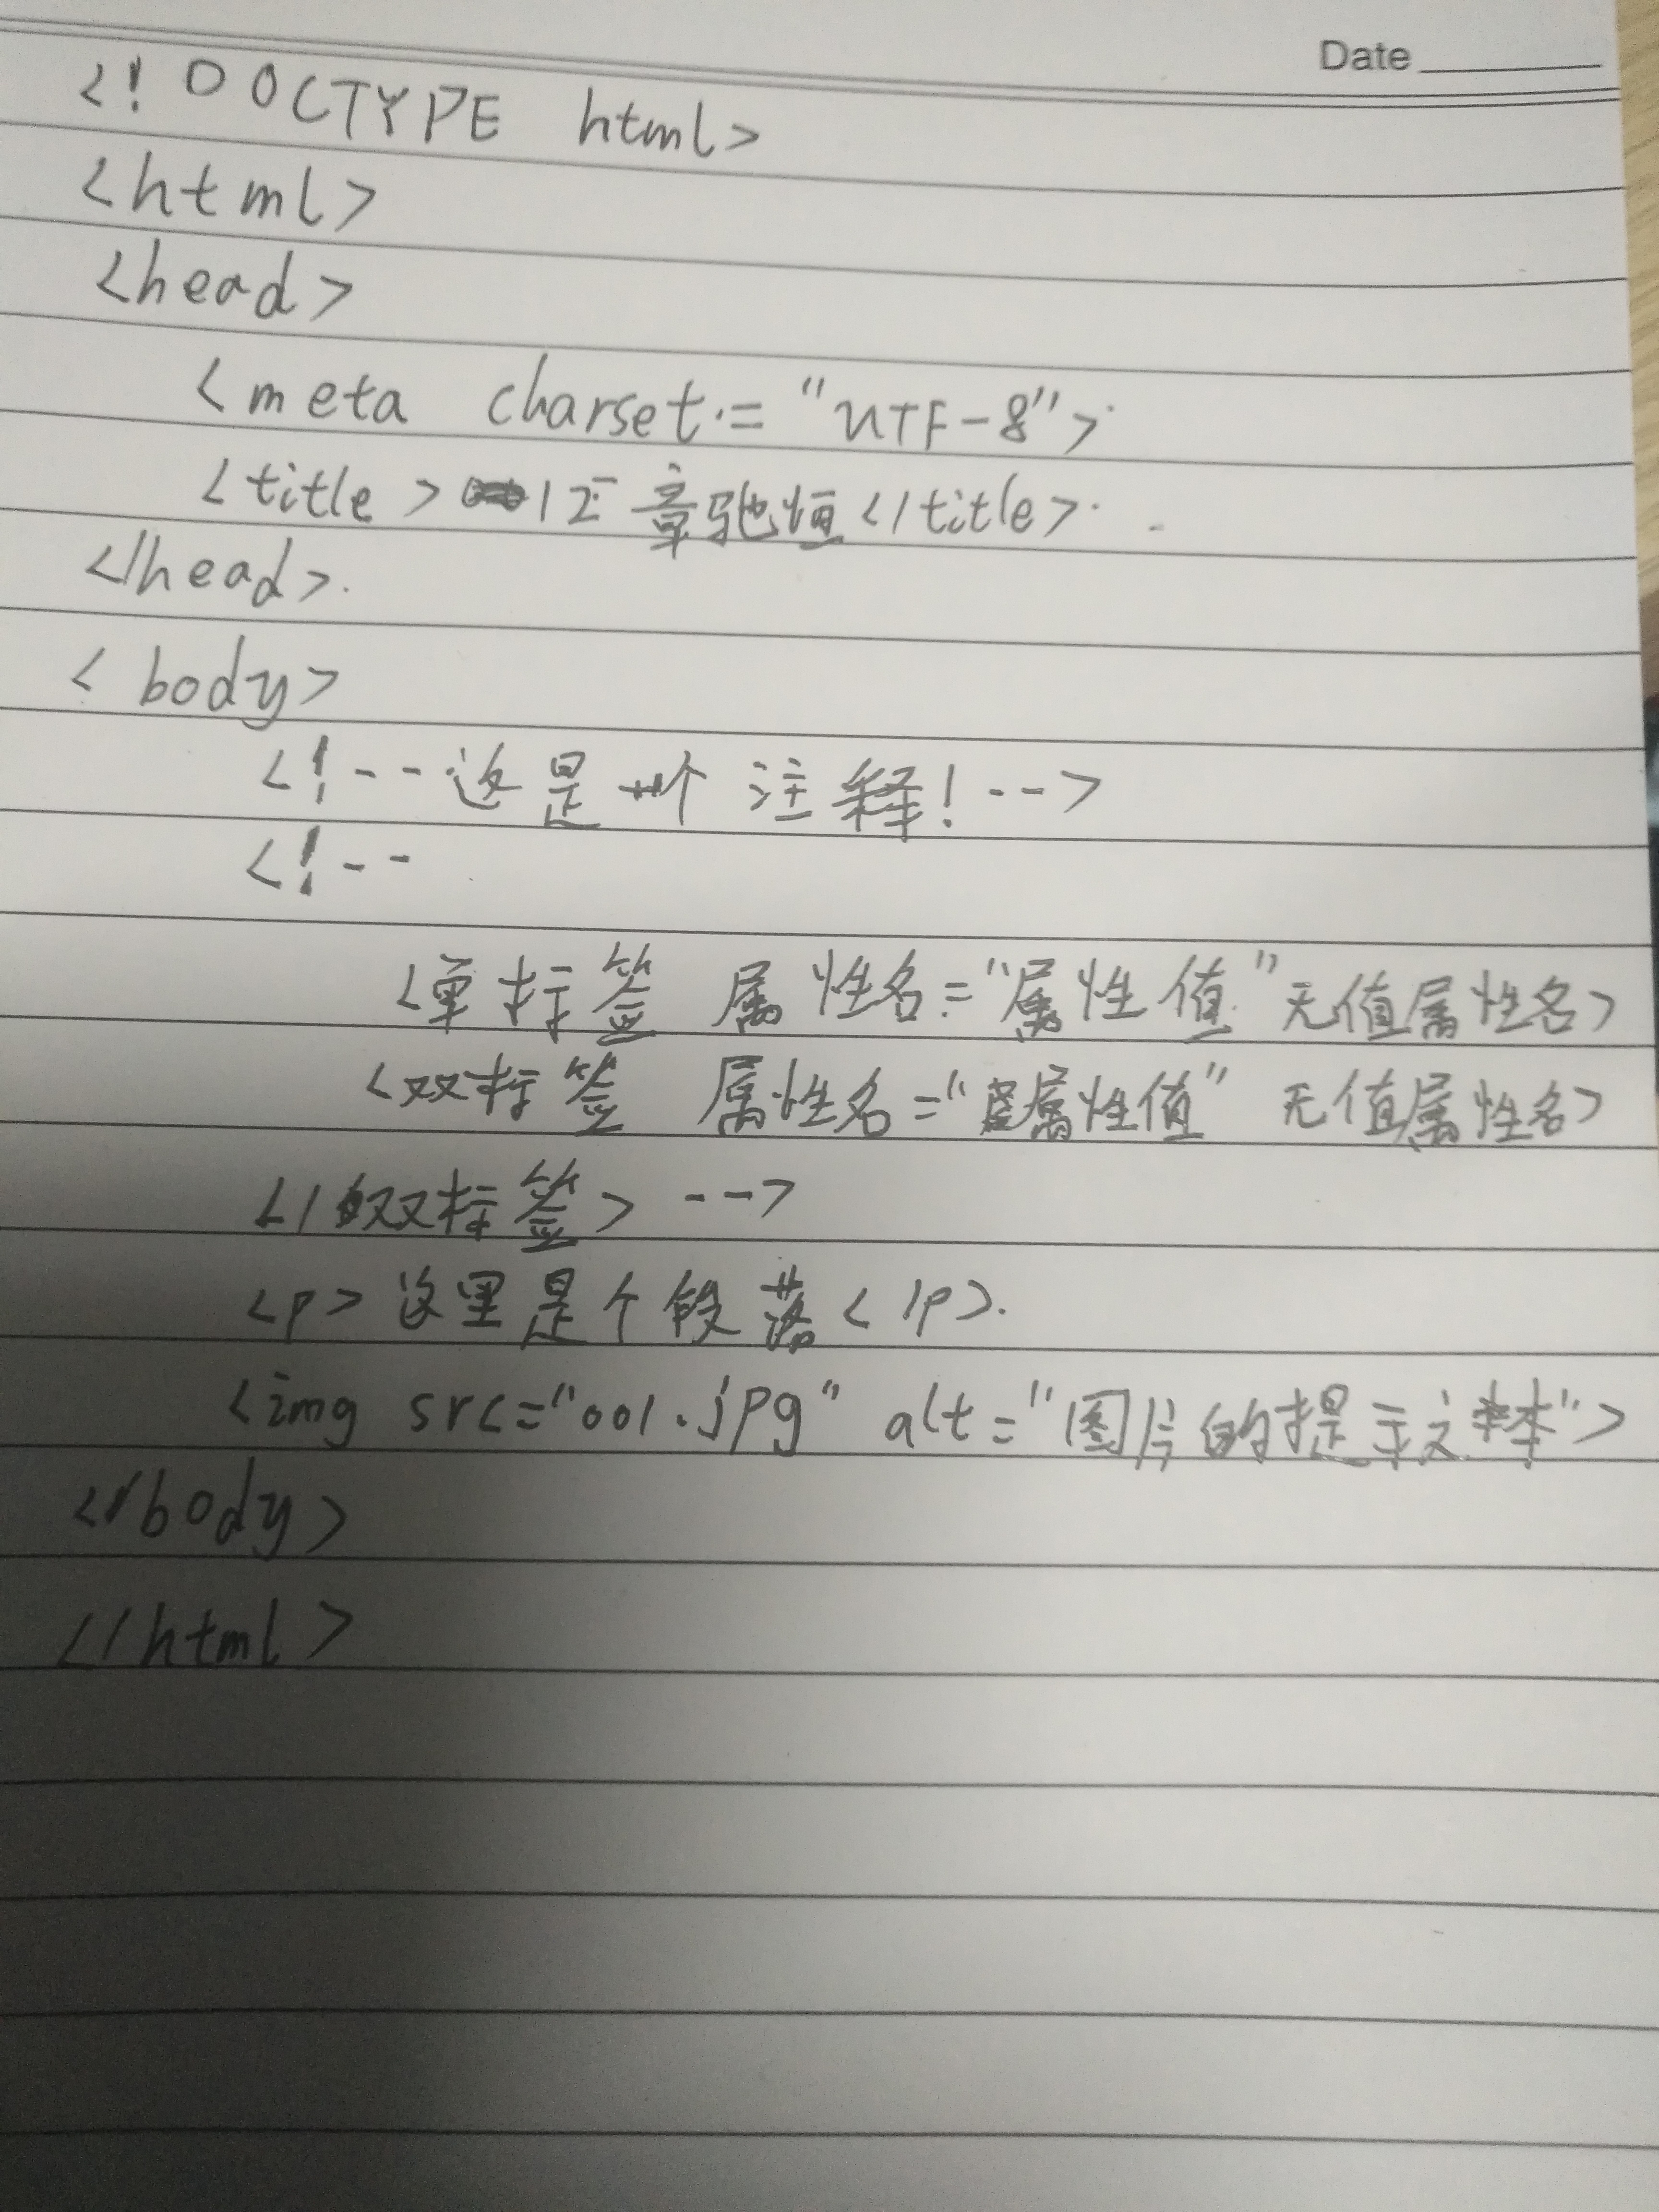 Date
<!DOCTYPE html>
<html>
<head>
<meta charset="UTF-8">
<title>12 章驰恒</title>
</head>
<body>
<!--这是一个注释!-->
<!--
<单标签 属性名="属性值"无值属性名>
<双标签 属性名="属性值" 无值属性名>
</双标签> -->
<p>这里是个段落</p>
<img src="001.jpg" alt="图片的提示文本">
</body>
</html>